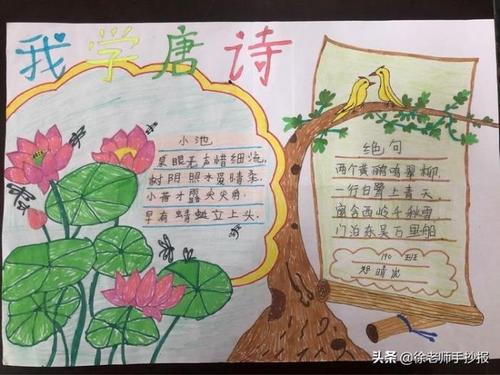 我学唐诗
小池
泉眼无声惜细流,
树阴照水爱晴柔,
小荷才露尖尖角,
早有蜻蜓立上头.
绝句
两个黄鹂鸣翠柳
一行白鹭上青天
窗含西岭千秋雪
门泊东吴万里船
头条 @徐老师手抄报